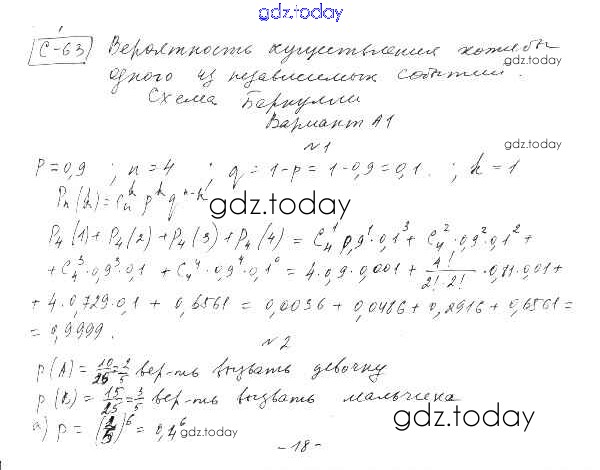 gdz.today
С-63 Вероятность осуществления хотя бы
gdz.today
одного из независимых событий.
Схема Бернулли
Вариант А1
№1
gdz.today
P = 0,9 ; n = 4 ; q = 1-p = 1-0,9 = 0,1. ; k = 1
Pn(k) = C_n^k p^k q^{n-k}
gdz.today
P₄(1) + P₄(2) + P₄(3) + P₄(4) = C₄¹ 0,9¹·0,1³ + C₄²·0,9²·0,1² +
+ C₄³·0,9³·0,1 + C₄⁴·0,9⁴·0,1⁰ = 4·0,9·0,001 + 4!/(2!·2!)·0,81·0,01 +
+ 4·0,729·0,1 + 0,6561 = 0,0036 + 0,0486 + 0,2916 + 0,6561 =
= 0,9999.
№2
p(A) = 10/25 = 2/5 вер-ть вызвать девочку
p(B) = 15/25 = 3/5 вер-ть вызвать мальчика
gdz.today
а) p = (2/5)⁶ = 0,4⁶
gdz.today
-18-